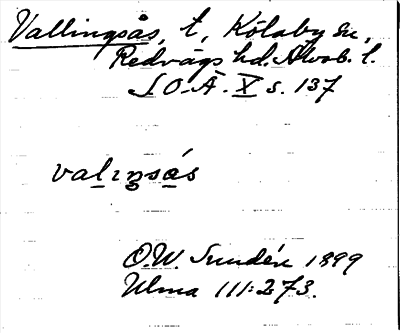 Vallingsås, t, Kölaby sn,
Redvägs hd. Älvsb. l.
SOÄ. X s. 137
valıŋsás
O.W. Sundén 1899
Ulma III:273.